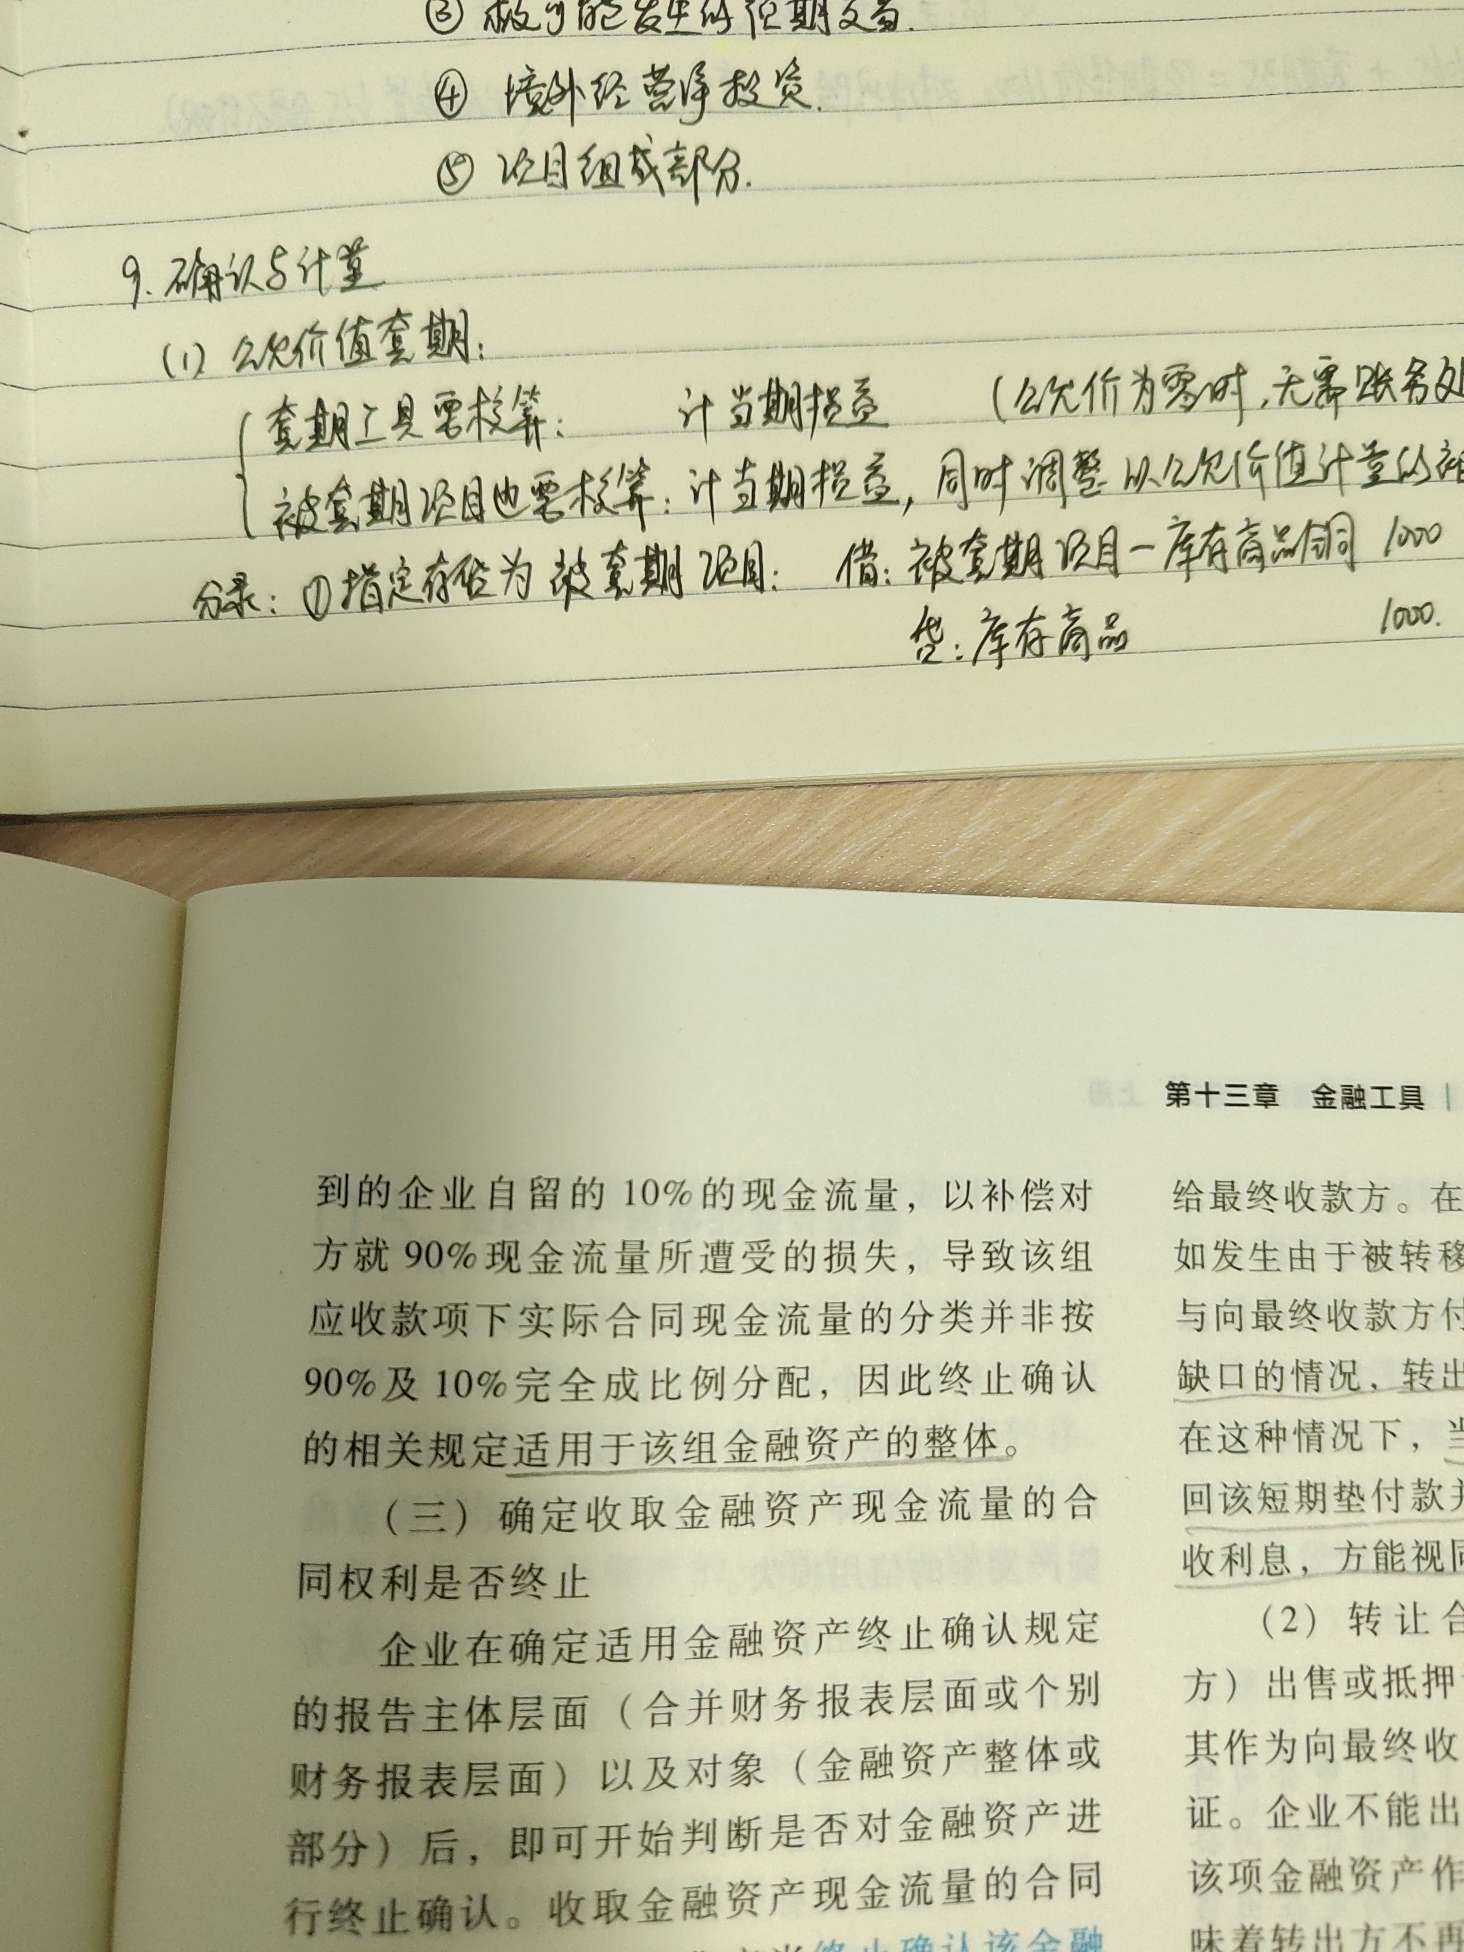 ③ 极可能发生的预期交易.
④ 境外经营净投资.
⑤ 项目组成部分.
9. 确认与计量
(1) 公允价值套期:
套期工具要核算: 计当期损益 (公允价为零时,无需账务处
被套期项目也要核算: 计当期损益, 同时调整 以公允价值计量的
分录: ①指定存货为被套期项目: 借: 被套期项目—库存商品铜 1000
贷: 库存商品 1000.
第十三章 金融工具
到的企业自留的10%的现金流量，以补偿对
方就90%现金流量所遭受的损失，导致该组
应收款项下实际合同现金流量的分类并非按
90%及10%完全成比例分配，因此终止确认
的相关规定适用于该组金融资产的整体。
（三）确定收取金融资产现金流量的合
同权利是否终止
企业在确定适用金融资产终止确认规定
的报告主体层面（合并财务报表层面或个别
财务报表层面）以及对象（金融资产整体或
部分）后，即可开始判断是否对金融资产进
行终止确认。收取金融资产现金流量的合同
终止确认该金融
给最终收款方。在
如发生由于被转移
与向最终收款方付
缺口的情况，转出
在这种情况下，当
回该短期垫付款并
收利息，方能视同
（2）转让合
方）出售或抵押
其作为向最终收
证。企业不能出
该项金融资产作
味着转出方不再